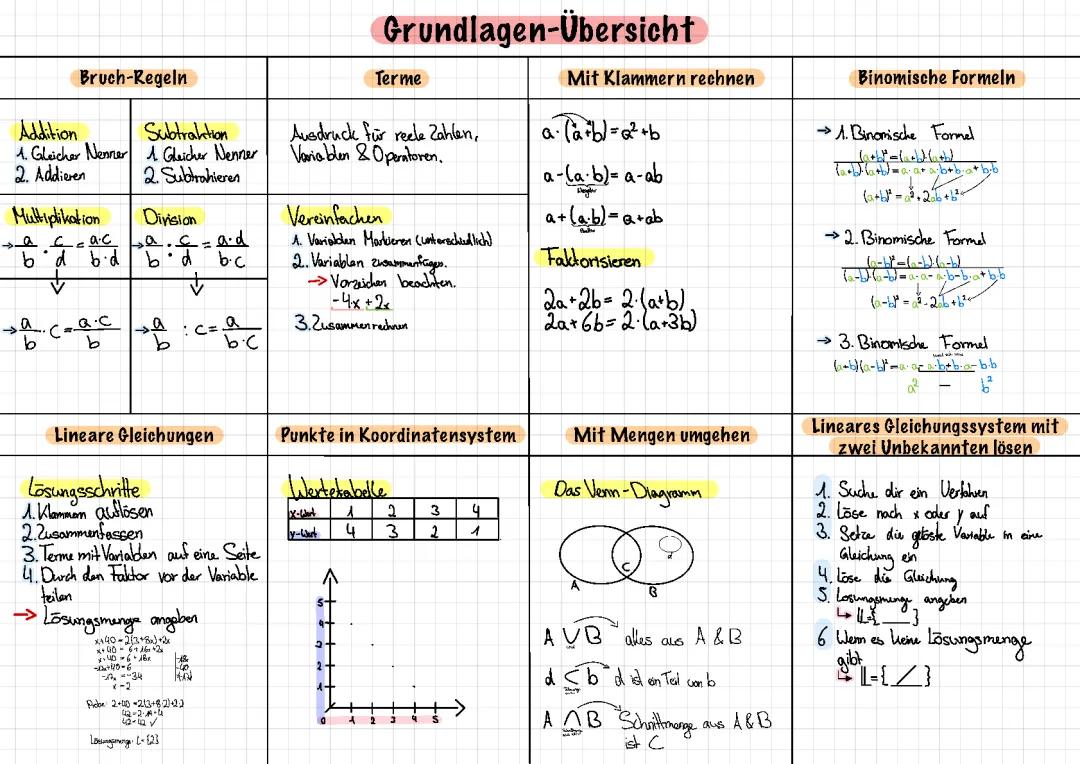 Grundlagen-Übersicht
Bruch-Regeln
Addition
1. Gleicher Nenner
2. Addieren
Subtraktion
1. Gleicher Nenner
2. Subtrahieren
Multiplikation
→ a/b · c/d = a·c/b·d
Division
→ a/b : c/d = a·d/b·c
→ a/b · c = a·c/b
→ a/b : c = a/b·c
Terme
Ausdruck für reele Zahlen,
Variablen & Operatoren.
Vereinfachen
1. Variablen Markieren (unterschiedlich)
2. Variablen zusammenfügen.
→ Vorzeichen beachten.
-4x + 2x
3. Zusammen rechnen
Mit Klammern rechnen
a·(a+b)=a²+b
a-(a·b)=a-ab
a+(a·b)=a+ab
Faktorisieren
2a+2b=2·(a+b)
2a+6b=2·(a+3b)
Binomische Formeln
→ 1. Binomische Formel
(a+b)²=(a+b)·(a+b)
(a+b)·(a+b)=a·a+a·b+b·a+b·b
(a+b)²=a²+2ab+b²
→ 2. Binomische Formel
(a-b)²=(a-b)·(a-b)
(a-b)·(a-b)=a·a-a·b-b·a+b·b
(a-b)²=a²-2ab+b²
→ 3. Binomische Formel
(a+b)(a-b)²=a·a-a·b+b·a-b·b
a² - b²
Lineare Gleichungen
Lösungsschritte
1. Klammern auflösen
2. Zusammenfassen
3. Terme mit Variablen auf eine Seite
4. Durch den Faktor vor der Variable
teilen
→ Lösungsmenge angeben
x+40=2(3+8x)+2x
x+40=6+16x+2x
x+40=6+18x
-17x+40=6
-17x=-34
x=2
Probe: 2+40=2(3+8·2)+2·2
42=2·19+4
42=42 ✓
Lösungsmenge: L={2}
Punkte in Koordinatensystem
Wertetabelle
x-Wert 1 2 3 4
y-Wert 4 3 2 1
5
4
3
2
1
0 1 2 3 4 5
Mit Mengen umgehen
Das Venn-Diagramm
d
C
A B
A ∪ B alles aus A & B
d ⊂ b d ist ein Teil von b
A ∩ B Schnittmenge aus A & B
ist C
Lineares Gleichungssystem mit
zwei Unbekannten lösen
1. Suche dir ein Verfahren
2. Löse nach x oder y auf
3. Setze die gelöste Variable in eine
Gleichung ein
4. Löse die Gleichung
5. Lösungsmenge angeben
↳ L={__}
6 Wenn es keine Lösungsmenge
gibt
↳ L={/}